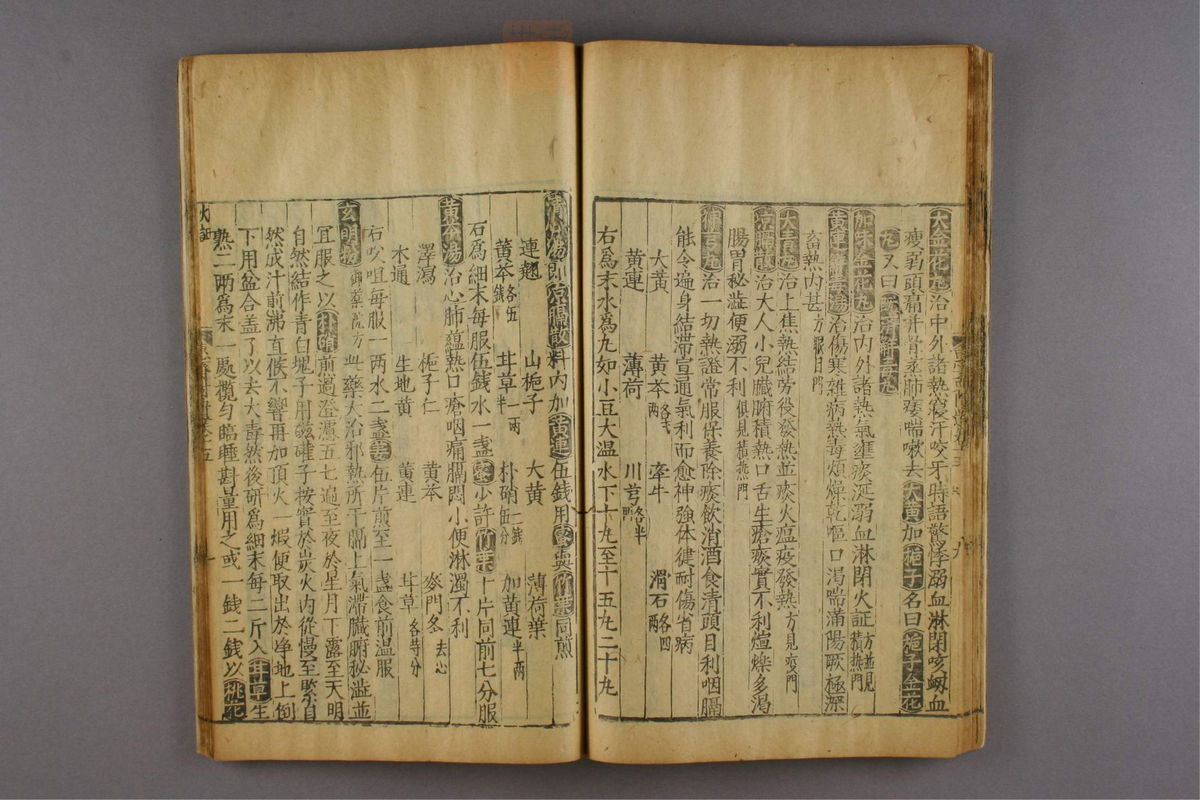 大金花丸治中外諸熱寢汗咬牙時語驚悸溺血淋閉咳衂血
瘦弱頭痛并骨蒸肺痿喘嗽去大黃加梔子名曰梔子金花
丸又曰
加味金花丸治內外諸熱氣壅痰涎溺血淋閉火証方並見積熱門
黃連解毒湯治傷寒雜病熱毒煩燥乾嘔口渴喘滿陽厥極深
畜熱內甚方眼目門
大青丸治上焦熱結勞役發熱並痰火瘟疫發熱方見門
凉膈散治大人小兒臟腑積熱口舌生瘡痰實不利煊燥多渴
腸胃秘澁便溺不利俱見積熱門
神芎丸治一切熱證常服保養除痰飲消酒食清頭目利咽膈
能令遍身結滯宣通氣利而愈神強体健耐傷省病
大黃 黃芩 牽牛 滑石
黃連 薄荷 川芎
右爲末水爲丸如小豆大温水下十丸至十五丸二十丸
湯即凉膈散料內加黃連伍錢用蜜與竹葉同煎
連翹 山梔子 大黃 薄荷葉
黃芩 甘草 朴硝 加黃連半兩
石爲細末每服伍錢水一盞蜜少許竹葉十片同前七分服
黃芩湯治心肺蘊熱口瘡咽痛膈悶小便淋濁不利
澤瀉 梔子仁 黃芩 麥門冬去心
木通 生地黃 黃連 甘草各等分
右㕮咀每服一兩水二盞姜伍片煎至一盞食前温服
玄明粉御藥院方此藥大治邪熱所干膈上氣滯臟腑秘澁並
宜服之以朴硝煎過澄濾五七遍至夜於星月下露至天明
自然結作青白塊子用磁礶子按實於炭火內從慢至緊自
然成汁煎沸直候不響再加頂火一煆便取出於净地上倒
下用盆合盖了以去火毒然後研爲細末每二斤入甘草生
熟二兩爲末一處攪勻臨睡斟量用之或一錢二錢以桃花
火証